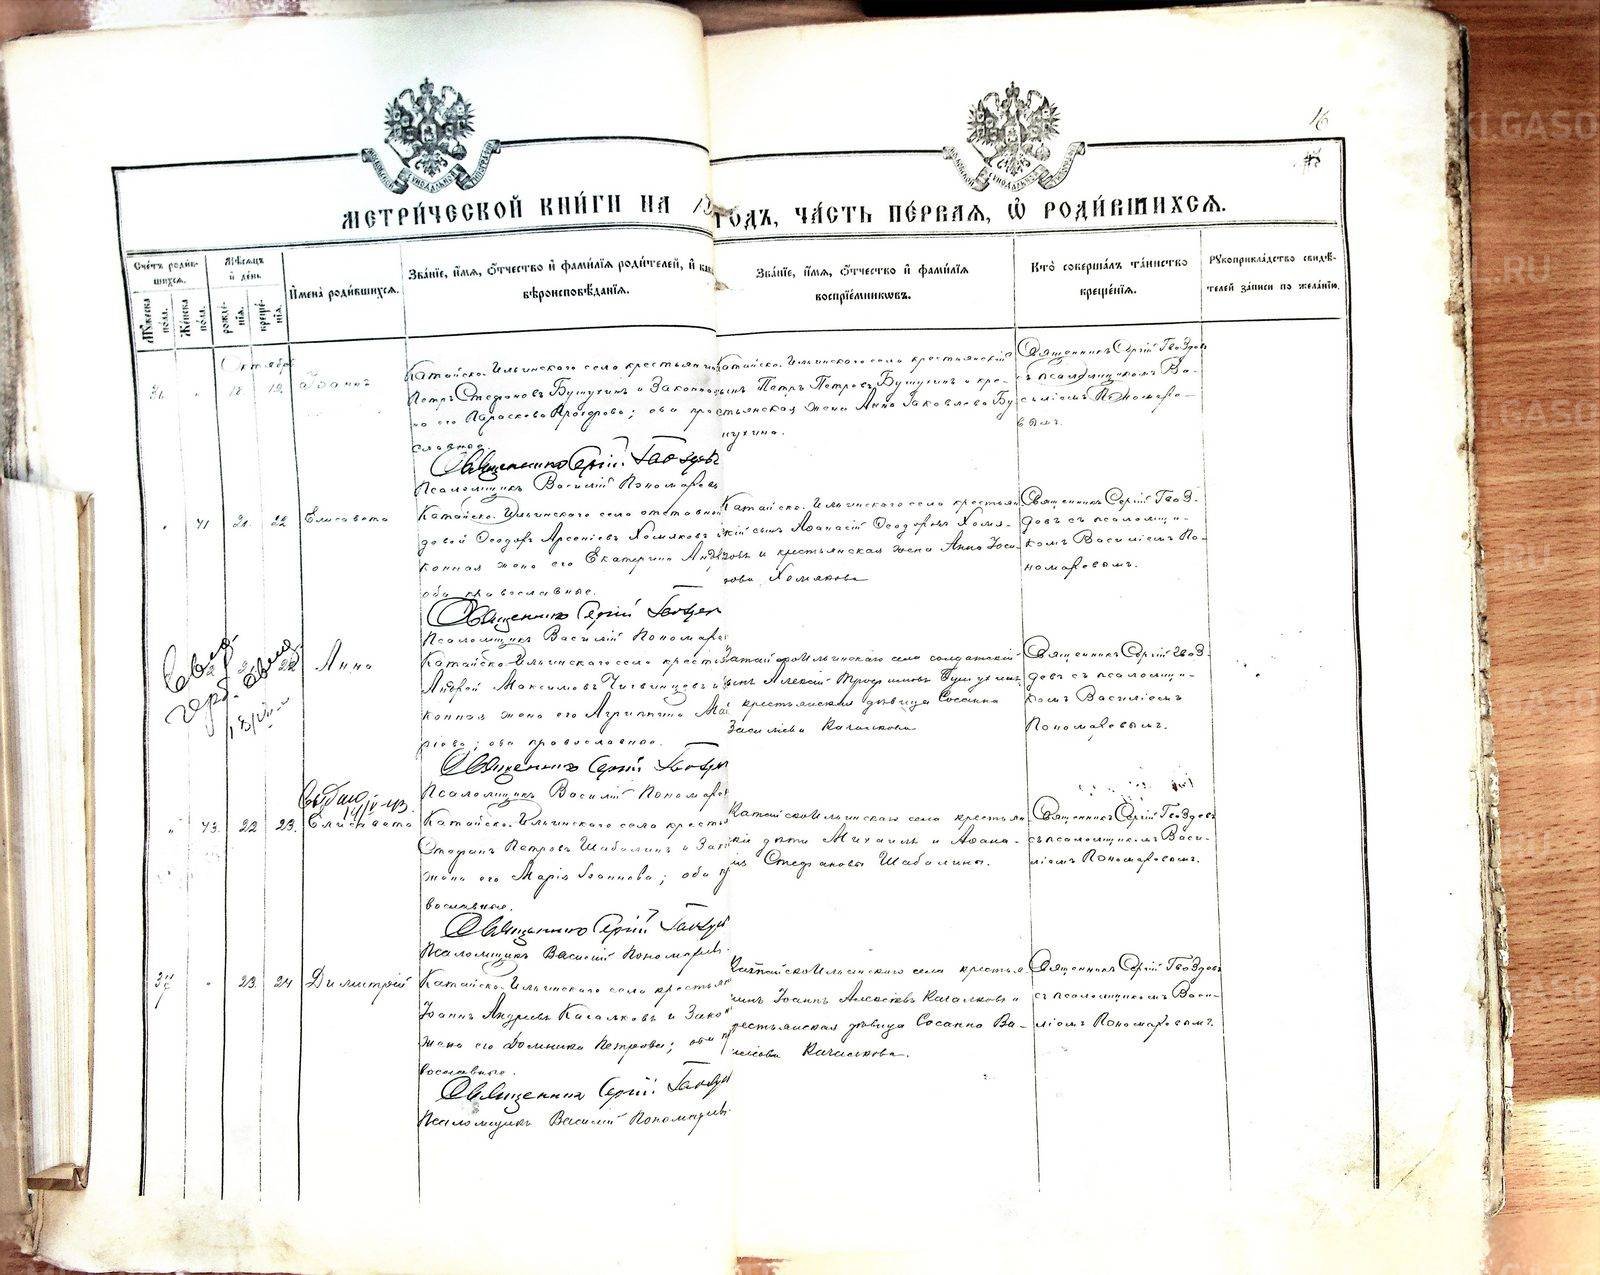 16
МЕТРИ́ЧЕСКОЙ КНИ́ГИ НА
ГОДЪ, ЧА́СТЬ ПЕ́РВАЯ, Ѡ РОДИ́ВШИХСЯ.
Сче́тъ роди́в-
шихся.
Му́жеска по́ла.
Же́нска по́ла.
Мѣ́сяцъ
и де́нь
рожде́-
нія.
креще́-
нія.
Имена̀ роди́вшихся.
Зва́ніе, и́мя, о́тчество и фами́лія роди́телей, и како́
вѣроисповѣ́данія.
Зва́ніе, и́мя, о́тчество и фами́лія
воспріе́мниковъ.
Кто̀ соверша́лъ та́инство
креще́нія.
Рукоприкла́дство свидѣ́-
телей за́писи по жела́нію.
Октябрь
18 19
Іоаннъ
Катайско-Ильинскаго села крестьянинъ
Петръ Стефановъ Бушухинъ и Законная
ова православные
Священникъ Сергій Гвоздевъ
Псаломщикъ Василій Пономаревъ
Катайско-Ильинскаго села крестьянскій
сынъ Петръ Петровъ Бушухинъ и кре-
стьянская жена Анна Іаковлева Бу
шухина.
Священникъ Сергій Гвоздевъ
съ псаломщикомъ Ва-
силіемъ Пономаре-
вымъ.
41 21 22 Елисавета
Катайско-Ильинскаго села отставной
Ѳеодоръ Арсеніевъ Хомяковъ
конная жена его Екатерина
оба православные.
Священникъ Сергій Гвоздевъ
Псаломщикъ Василій Пономаревъ
Катайско-Ильинскаго села крестьян
скій сынъ Аѳанасій Ѳеодоровъ Хомя-
ковъ и крестьянская жена Анна
Хомякова
Священникъ Сергій Гвоз-
девъ съ псаломщи-
комъ Василіемъ По-
номаревымъ.
22 Анна
Катайско-Ильинскаго села крестья
Андрей Максимовъ
конная жена его Агрипина
оба православные.
Священникъ Сергій Гвоздевъ
Псаломщикъ Василій Пономаревъ
Катайско-Ильинскаго села солдатскій
сынъ Алексій Трофимовъ
крестьянская дѣвица Сосанна
Васильева Качалкова
Священникъ Сергій Гвоз-
девъ съ псаломщи-
комъ Василіемъ
Пономаревымъ.
43. 22 23. Елисавета
Катайско-Ильинскаго села крестья
Стефанъ Петровъ Шабалинъ и Зак
жена его Марія Іоаннова; оба п
вославные.
Священникъ Сергій Гвоздевъ
Псаломщикъ Василій Пономаревъ.
Катайско-Ильинскаго села крестьян
скія дѣти Михаилъ и Аѳана-
сія Стефановы Шабалины.
Священникъ Сергій Гвоздевъ
съ псаломщикомъ Васи-
ліемъ Пономаревымъ.
23. 24 Димитрій
Катайско-Ильинскаго села крестья
Іоаннъ Андреевъ Качалковъ и Зако
жена его Домника Петрова; оба п
вославные.
Священникъ Сергій Гвоздевъ
Псаломщикъ Василій Пономаревъ.
Катайско-Ильинскаго села крестья
нинъ Іоаннъ Алексіевъ Качалковъ и
крестьянская дѣвица Сосанна Ва-
Качалкова.
Священникъ Сергій Гвоздевъ
съ псаломщикомъ Васи-
ліемъ Пономаревымъ.